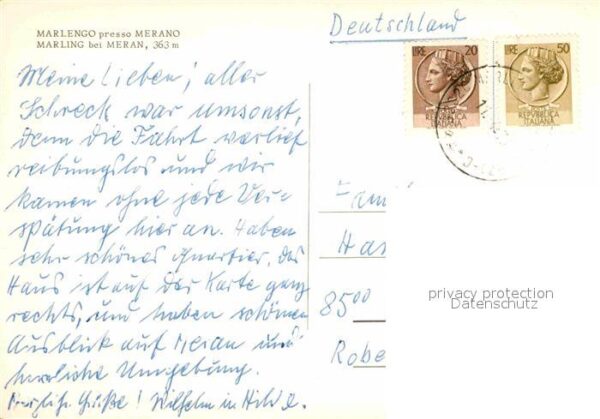 MARLENGO presso MERANO
MARLING bei MERAN, 363 m
Deutschland
LIRE 20
LIRE 50
REPVBBLICA
ITALIANA
REPVBBLICA
ITALIANA
Meine Lieben, aller
Schreck war umsonst,
denn die Fahrt verlief
reibungslos und wir
kamen ohne jede Ver-
spätung hier an. Haben
sehr schönes Quartier, das
Haus ist auf der Karte ganz
rechts, und haben schönen
Ausblick auf Meran und
herrliche Umgebung.
Herzliche Grüße! Wilhelm u. Hilde.
Fam
Has
8500
Robe
privacy protection
Datenschutz